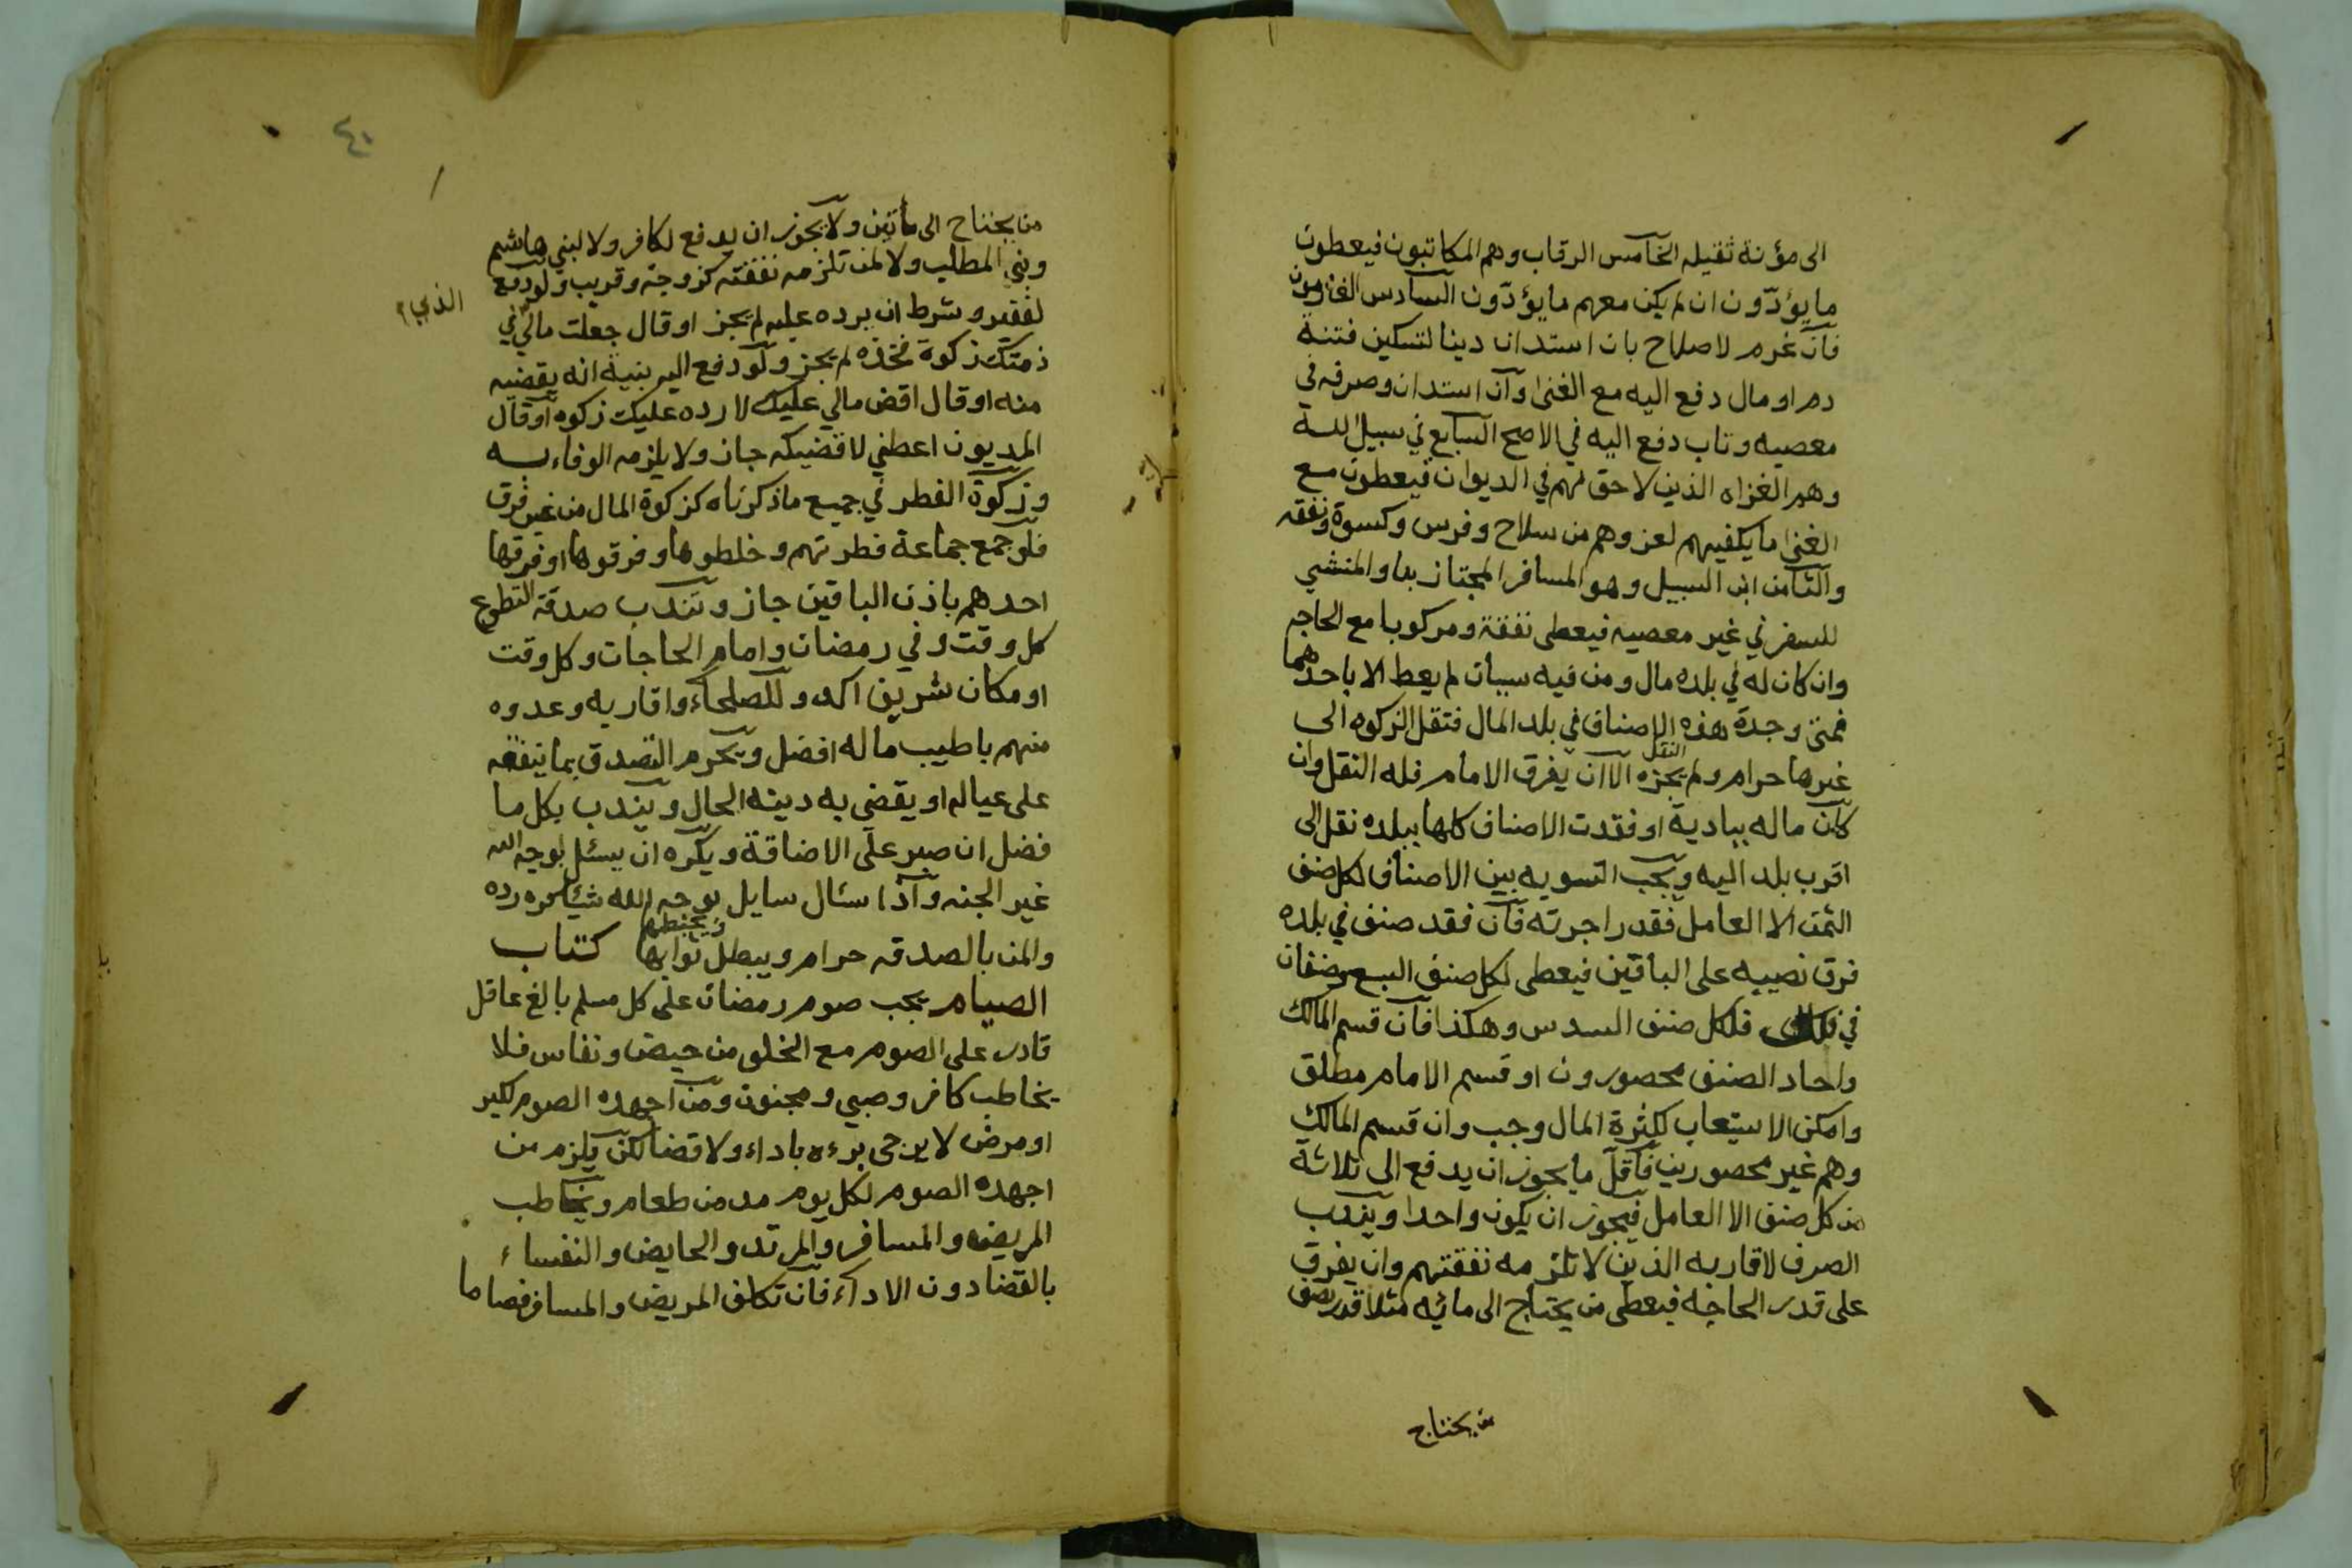 الى مؤنة ثقيله الخامس الرقاب وهم المكاتبون فيعطون
ما يؤدّون ان لم يكن معهم ما يؤدّون السادس الغارمون
فان غرم لاصلاح بان استدان دينا لتسكين فتنة
دم او مال دفع اليه مع الغنى وان استدان وصرفه في
معصيه وتاب دفع اليه في الاصح السابع في سبيل الله
وهم الغزاه الذين لا حق لهم في الديوان فيعطون مع
الغنى ما يكفيهم لغزوهم من سلاح وفرس وكسوة ونفقه
والثامن ابن السبيل وهو المسافر المجتاز بنا والمنشي
للسفر في غير معصيه فيعطى نفقة ومركوبا مع الحاجه
وان كان له في بلده مال ومن فيه سببان لم يعط الا باحدهما
فمتى وجدة هذه الاصناف في بلد المال فنقل الزكوه الى
غيرها حرام ولم يجزه النقل الا ان يفرق الامام فله النقل وان
كان ماله ببادية او فقدت الاصناف كلها ببلده نقل الى
اقرب بلد اليه ويجب التسويه بين الاصناف لكل صنف
الثمن الا العامل فقدر اجرته فان فقد صنف في بلده
فرق نصيبه على الباقين فيعطى لكل صنف السبع وصنفان
في فلكل صنف السدس وهكذا فان قسم المالك
واحاد الصنف محصورون او قسم الامام مطلق
وامكن الاستيعاب لكثرة المال وجب وان قسم المالك
وهم غير محصورين فاقل ما يجوز ان يدفع الى ثلاثة
من كل صنف الا العامل فيجوز ان يكون واحدا ويندب
الصرف لاقاربه الذين لا تلزمه نفقتهم وان يفرق
على قدر الحاجه فيعطى من يحتاج الى مائه مثلا قدر نصف
من يحتاج
٤٠
من يحتاج الى مأتين ولا يجوز ان يدفع لكافر ولا لبني هاشم
وبني المطلب ولا لمن تلزمه نفقته كزوجة وقريب ولو دفع
لفقير وشرط ان يرده عليه لم يجز او قال جعلت مالي في
الذي
ذمتك زكوة فخذه لم يجز ولو دفع اليه بنية انه يقضيه
منه او قال اقض مالي عليك لا رده عليك زكوه او قال
المديون اعطني لا قضيكه جاز ولا يلزمه الوفاء به
وزكوة الفطر في جميع ما ذكرناه كزكوة المال من غير فرق
فلو جمع جماعة فطرتهم وخلطوها وفرقوها او فرقها
احدهم باذن الباقين جاز وتندب صدقة التطوع
كل وقت وفي رمضان وامام الحاجات وكل وقت
او مكان شريف اكد وللصلحاء واقاربه وعدوه
منهم باطيب ماله افضل ويحرم التصدق بما ينفقه
على عياله او يقضي به دينه الحال ويندب بكل ما
فضل ان صبر على الاضاقة ويكره ان يسئل بوجه الله
غير الجنه واذا سئال سايل بوجه الله شيئا كره رده
والمن بالصدقه حرام ويبطل ثوابها ويحبطها كتاب
الصيام يجب صوم رمضان على كل مسلم بالغ عاقل
قادر على الصوم مع الخلو من حيض ونفاس فلا
يخاطب كافر وصبي ومجنون ومن اجهده الصوم لكبر
او مرض لا يرجى برءه باداء ولا قضا لكن يلزم من
اجهده الصوم لكل يوم مد من طعام ويخاطب
المريض والمسافر والمرتد والحايض والنفساء
بالقضا دون الاداء فان تكلف المريض والمسافر فصاما